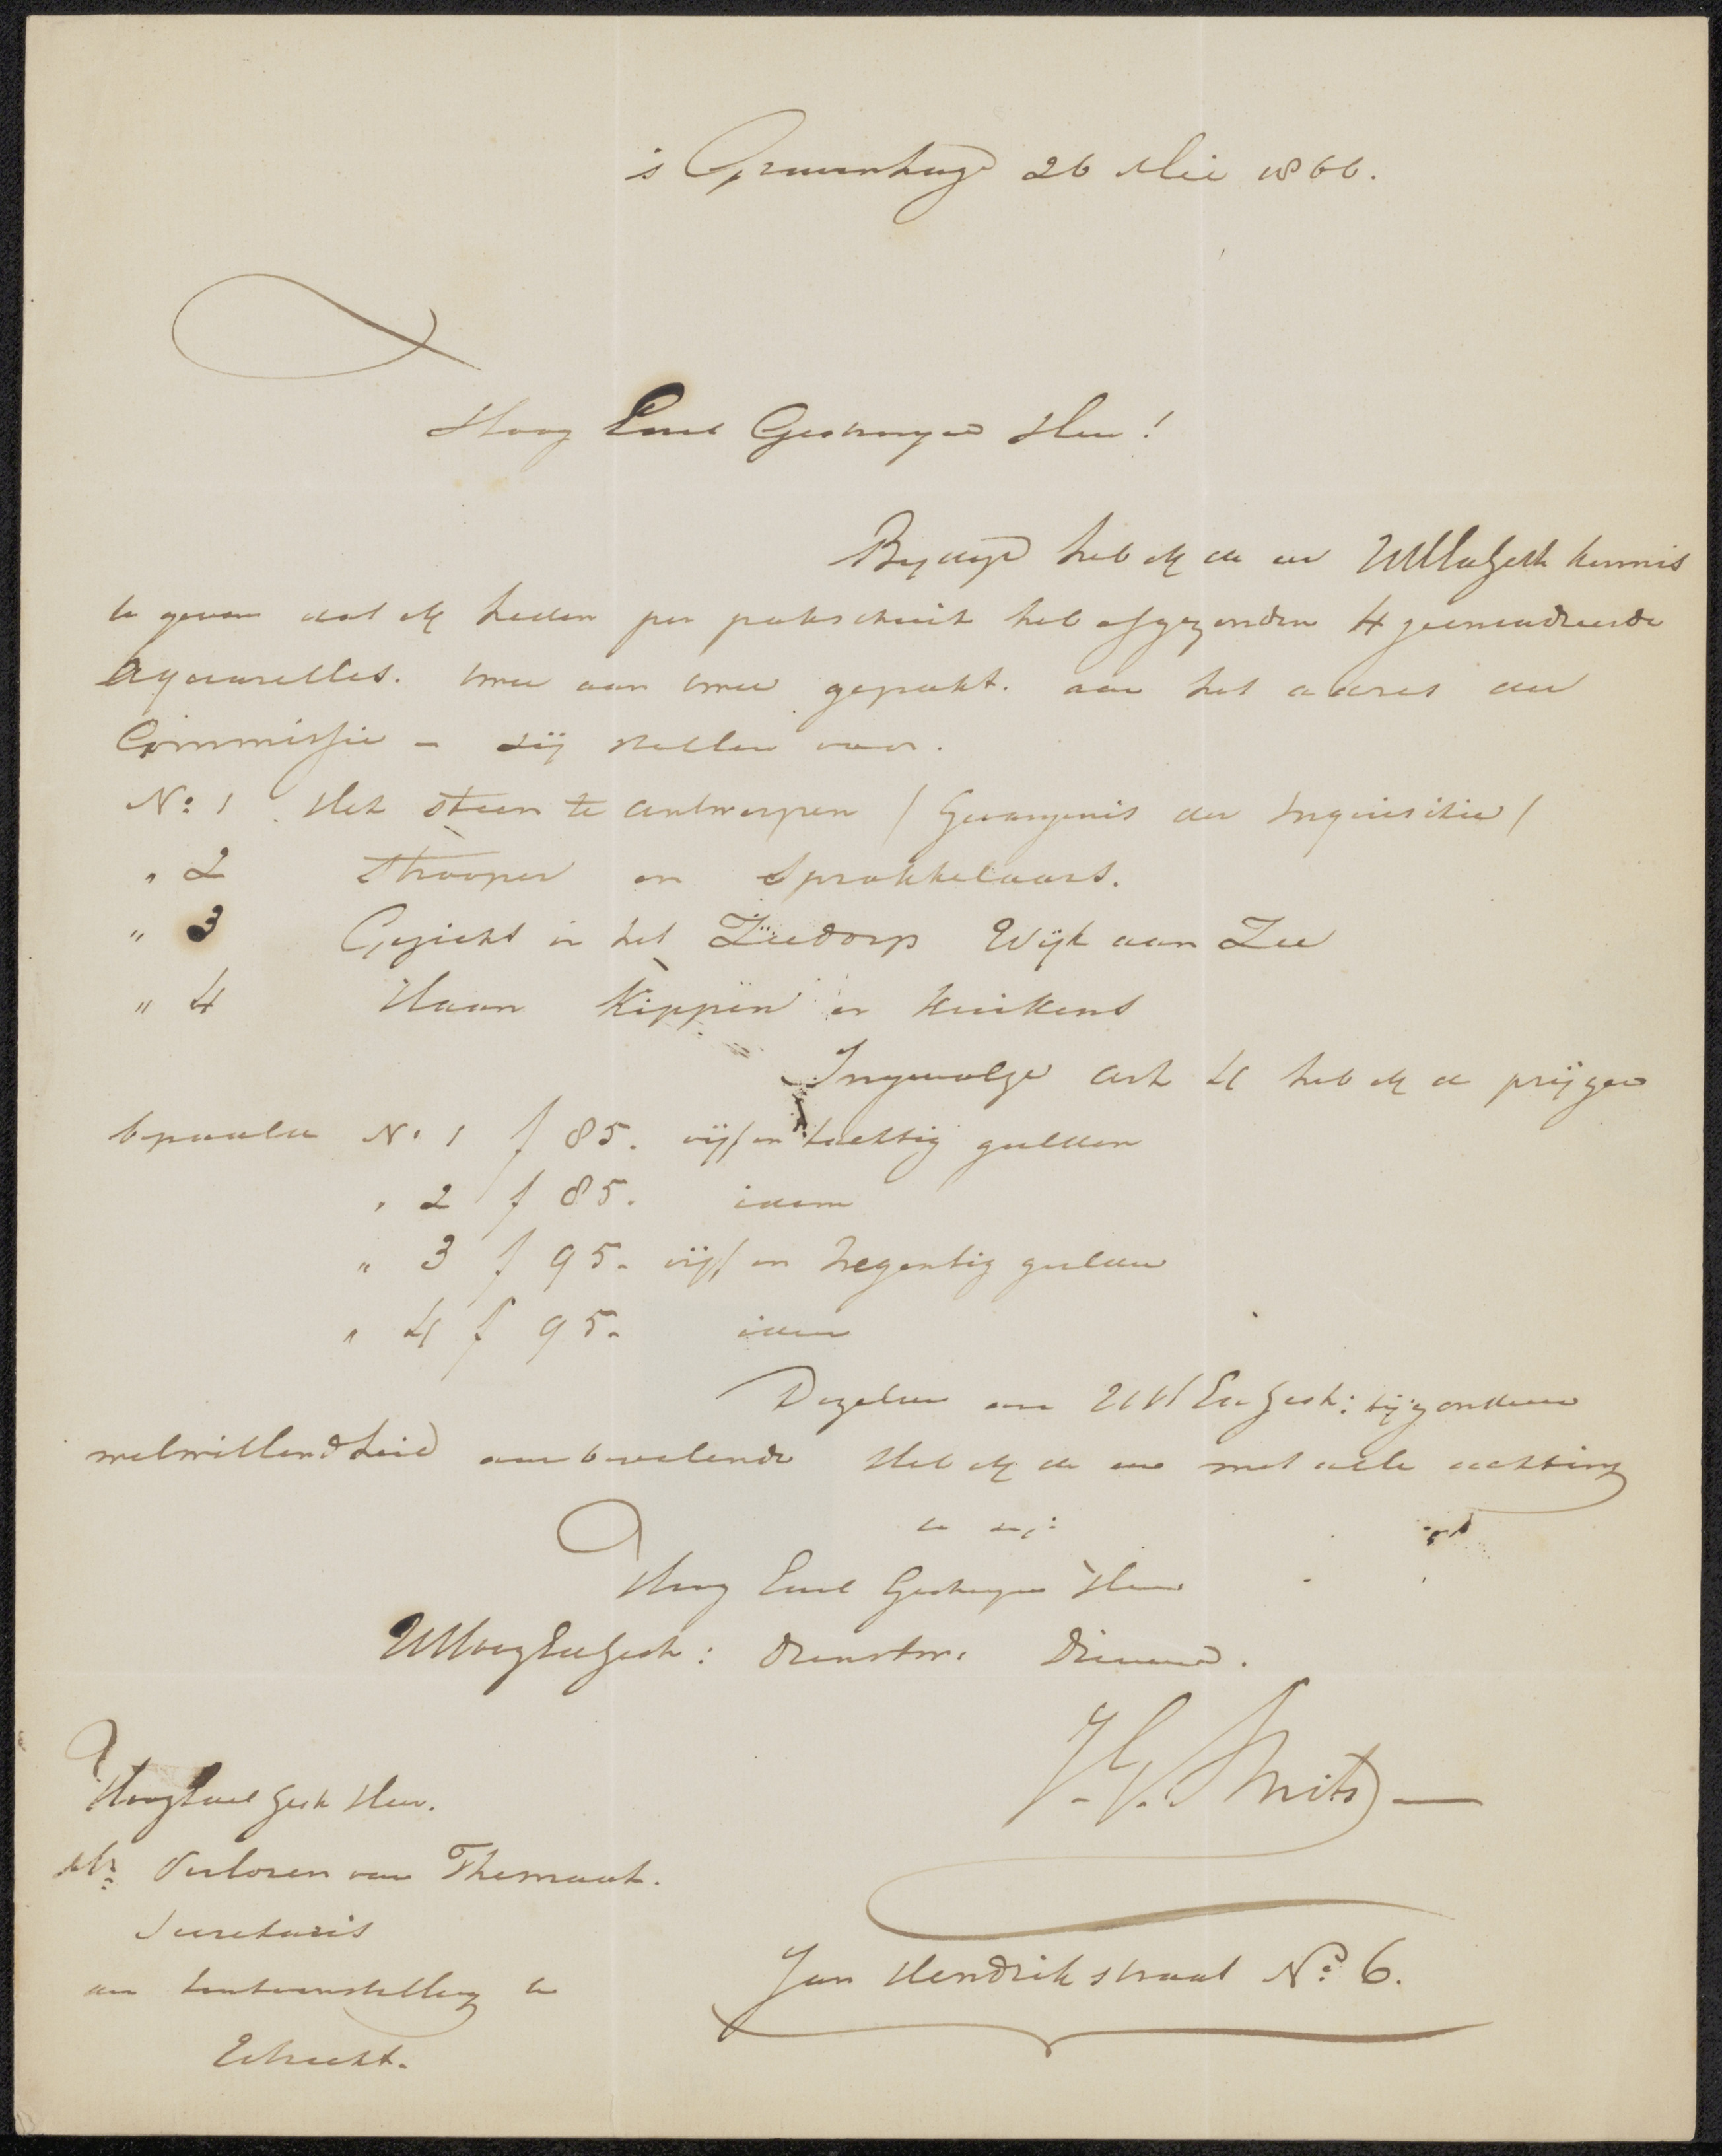 's Gravenhage 26 Mei 1866.
Hoog Edel Gestrenge Heer!
By deze heb ik de eer UHEdGestr kennis
te geven dat ik heden per pakschuit heb afgezonden 4 geencadreerde
Aquarelles. twee aan twee gepakt. aan het adres der
Commissie - zij stellen voor.
No: 1. Het steen te antwerpen / Gevangenis der Inquisitie /
" 2 Strooper en Sprokkelaars.
" 3 Gezicht in het Zeedorp Wijk aan Zee
" 4 Haan Kippen en Kuikens
Ingevolge art 4 heb ik de prijzen
bepaald No. 1 f 85. vijf en tachtig gulden
" 2 f 85. idem
" 3 f 95. vijf en negentig gulden
" 4 f 95. idem
Dezelve aan UHEdGestr: bijzondere
welwillendheid aanbevelende Heb ik de eer met alle achting
te zijn:
Hoog Edel Gestrenge Heer
UHoogEdGestr: Dienstw: Dienaar.
J. G. Smits
HoogEdel Gestr Heer.
Mr. Verloren van Themaat.
Secretaris
der tentoonstelling te
Utrecht.
Jan Hendrik straat No: 6.